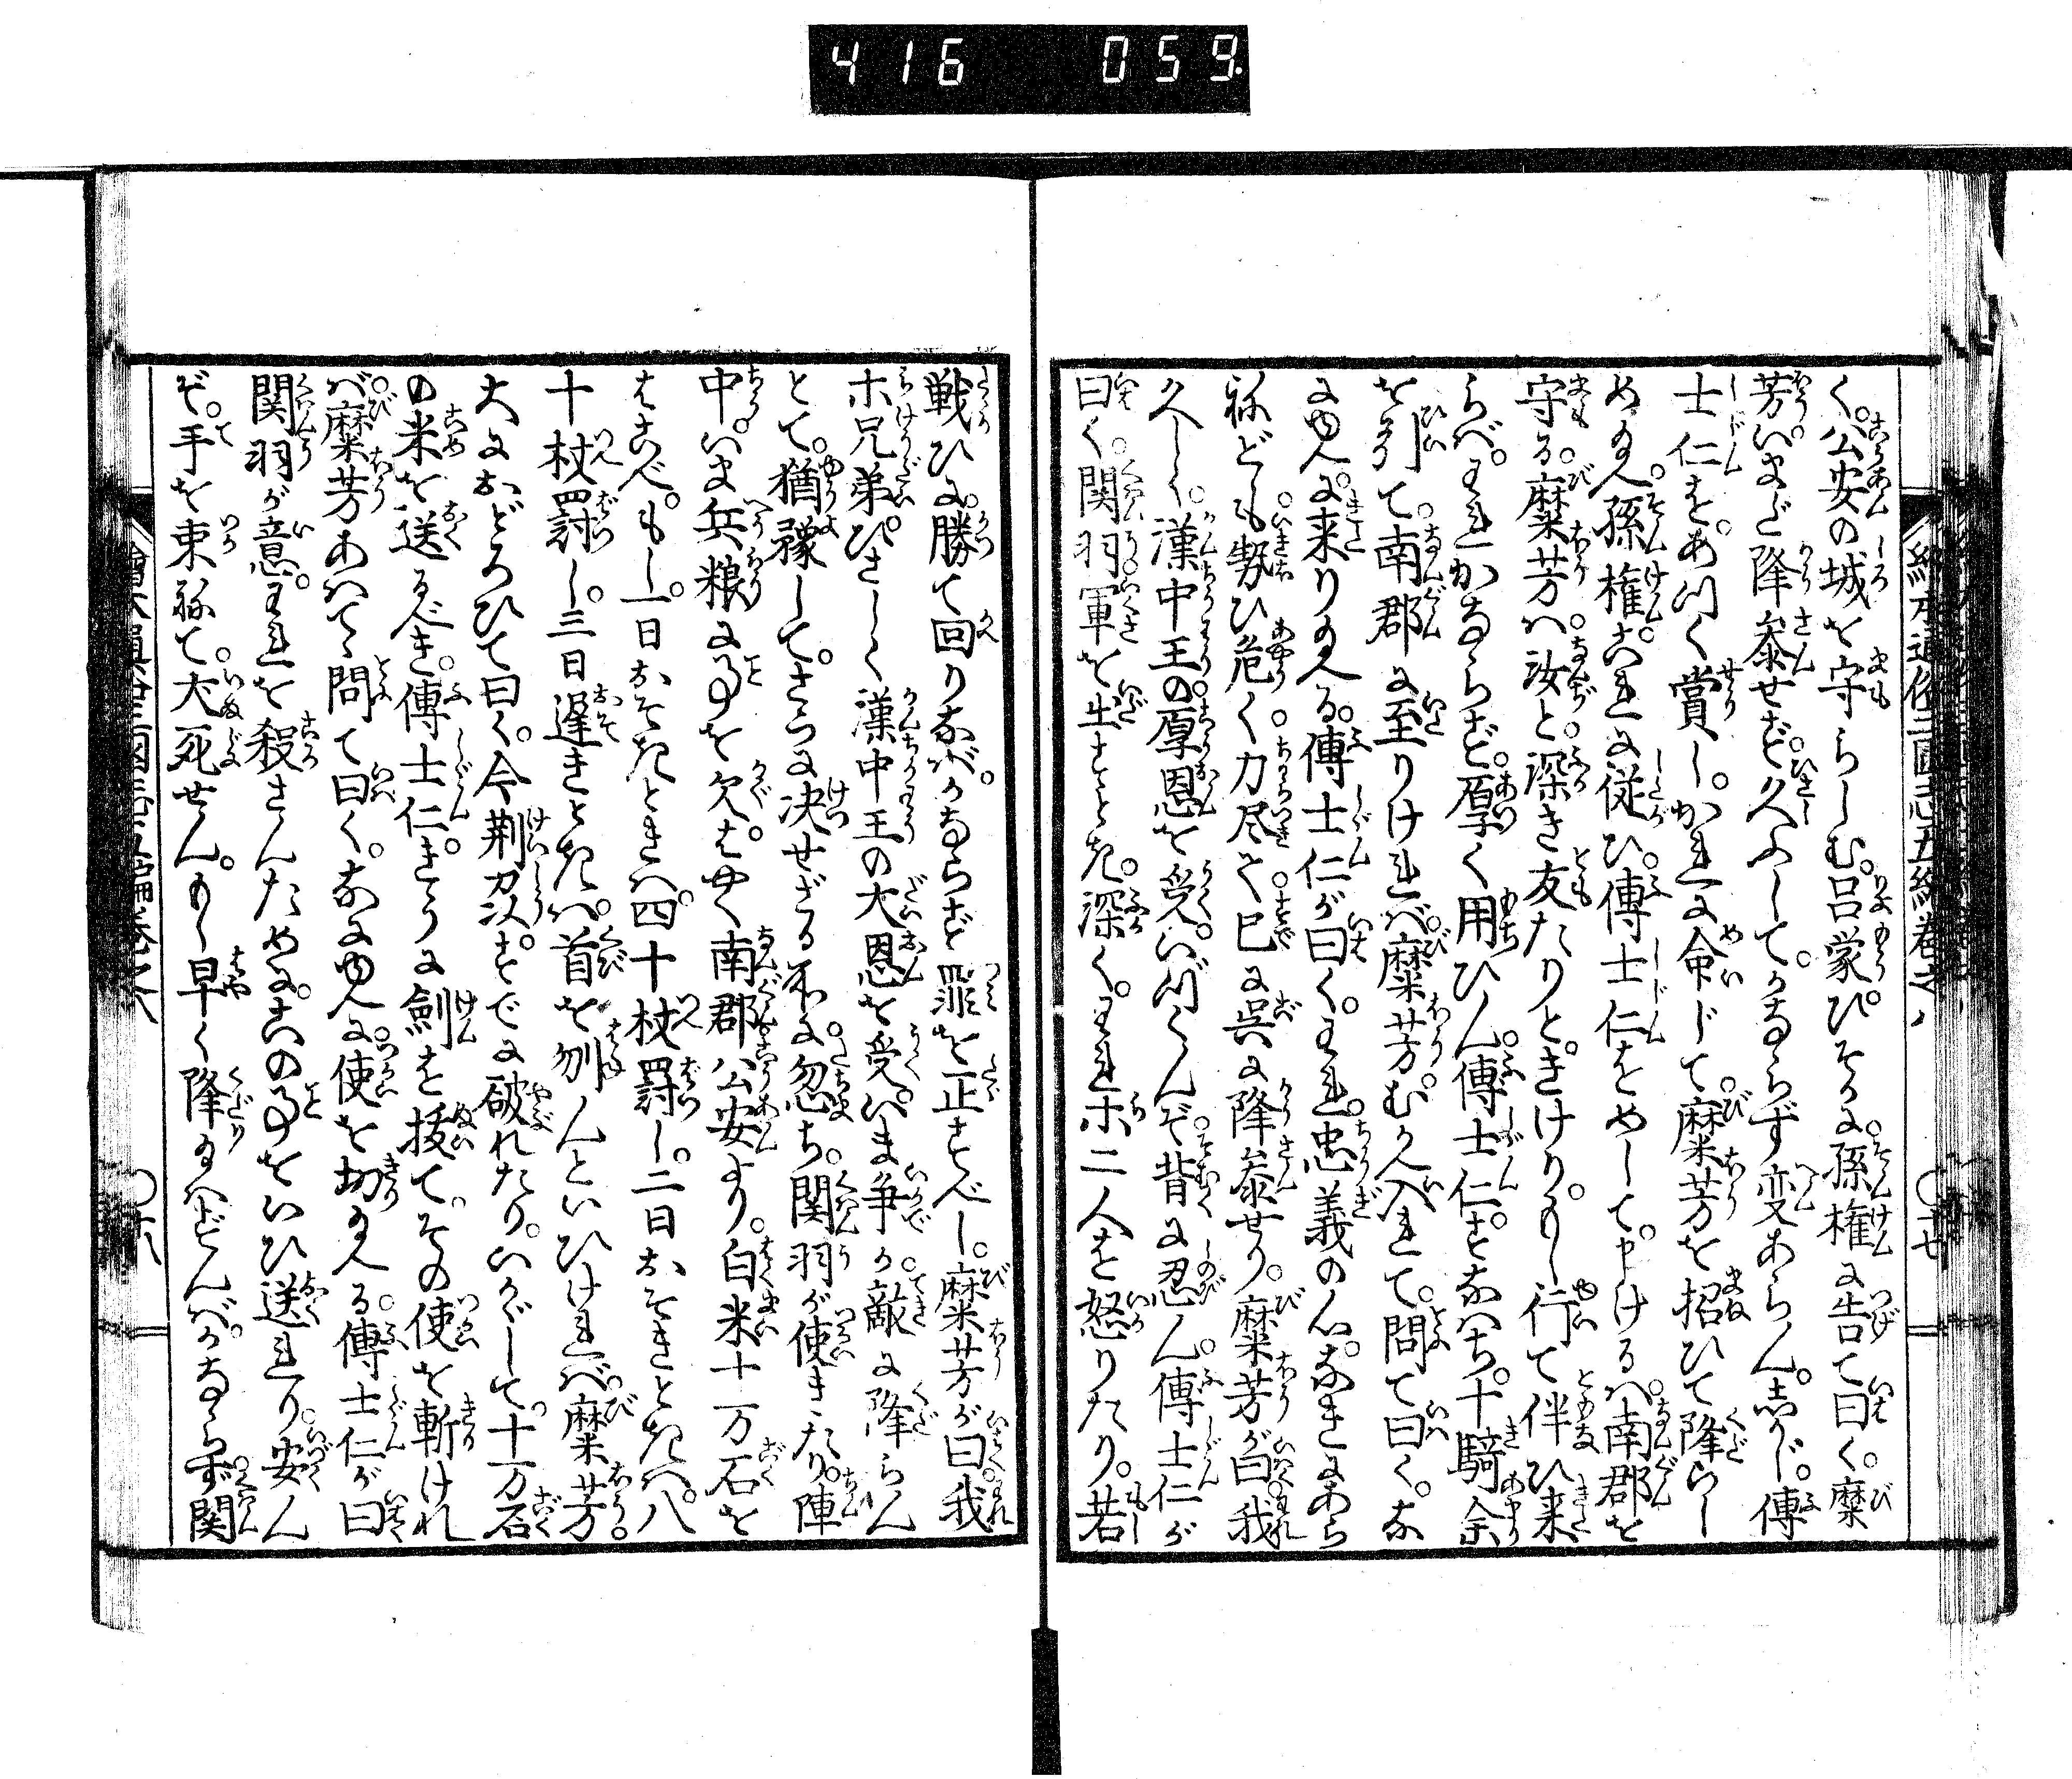 416 059.
く。公安の城を守らしむ。呂蒙ひそかに孫権に告て曰く。糜
芳いまだ降参せず。久ふしてかならず変あらん。しかじ。傅
士仁を。あつく賞し。かれに命じて。糜芳を招ひて降らし
め給へ。孫権。これに従ひ。傅士仁をめして。申けるは。南郡を
守る。糜芳は。汝と。深き友たりと。きけり。もし行て伴ひ来
らば。われかならず。厚く用ひん。傅士仁。すなはち。十騎余
を引て。南郡に至りければ。糜芳。むかへ入れて。問て曰く。な
にゆへに来り給へる。傅士仁が曰く。われ。忠義の心。なきにあら
ねども。勢ひ危く。力尽て。已に呉に降参せり。糜芳が曰。我
久しく。漢中王の厚恩を受く。いづくんぞ背に忍ん。傅士仁が
曰く。関羽軍を出すとき。深く。われホ二人を怒りたり。若
戦ひに勝て回りなば。かならず罪を正すべし。糜芳が曰。我
ホ兄弟。ひさしく漢中王の大恩を受く。いま争か。敵に降らん
とて。猶豫して。さらに決せざる所に。忽ち。関羽が使きたり。陣
中。いま兵粮に事を欠く。はやく南郡公安より。白米十万石を
はこべ。もし。一日おそきときは。四十杖罰し。二日おそきときは。八
十杖罰し。三日遅きときは。首を刎んといひければ。糜芳。
大におどろひて曰く。今荊州。すでに破れたり。いかがして。十万石
の米を送るべき。傅士仁。きうに劍を抜て。その使を斬けれ
ば。糜芳あはてゝ問て曰く。なにゆへに。使を切給へる。傅士仁が曰
関羽が意。われを殺さんために。この事をいひ送れり。安ん
ぞ。手を束ねて。犬死せん。もし早く降り給はずんば。かならず。関